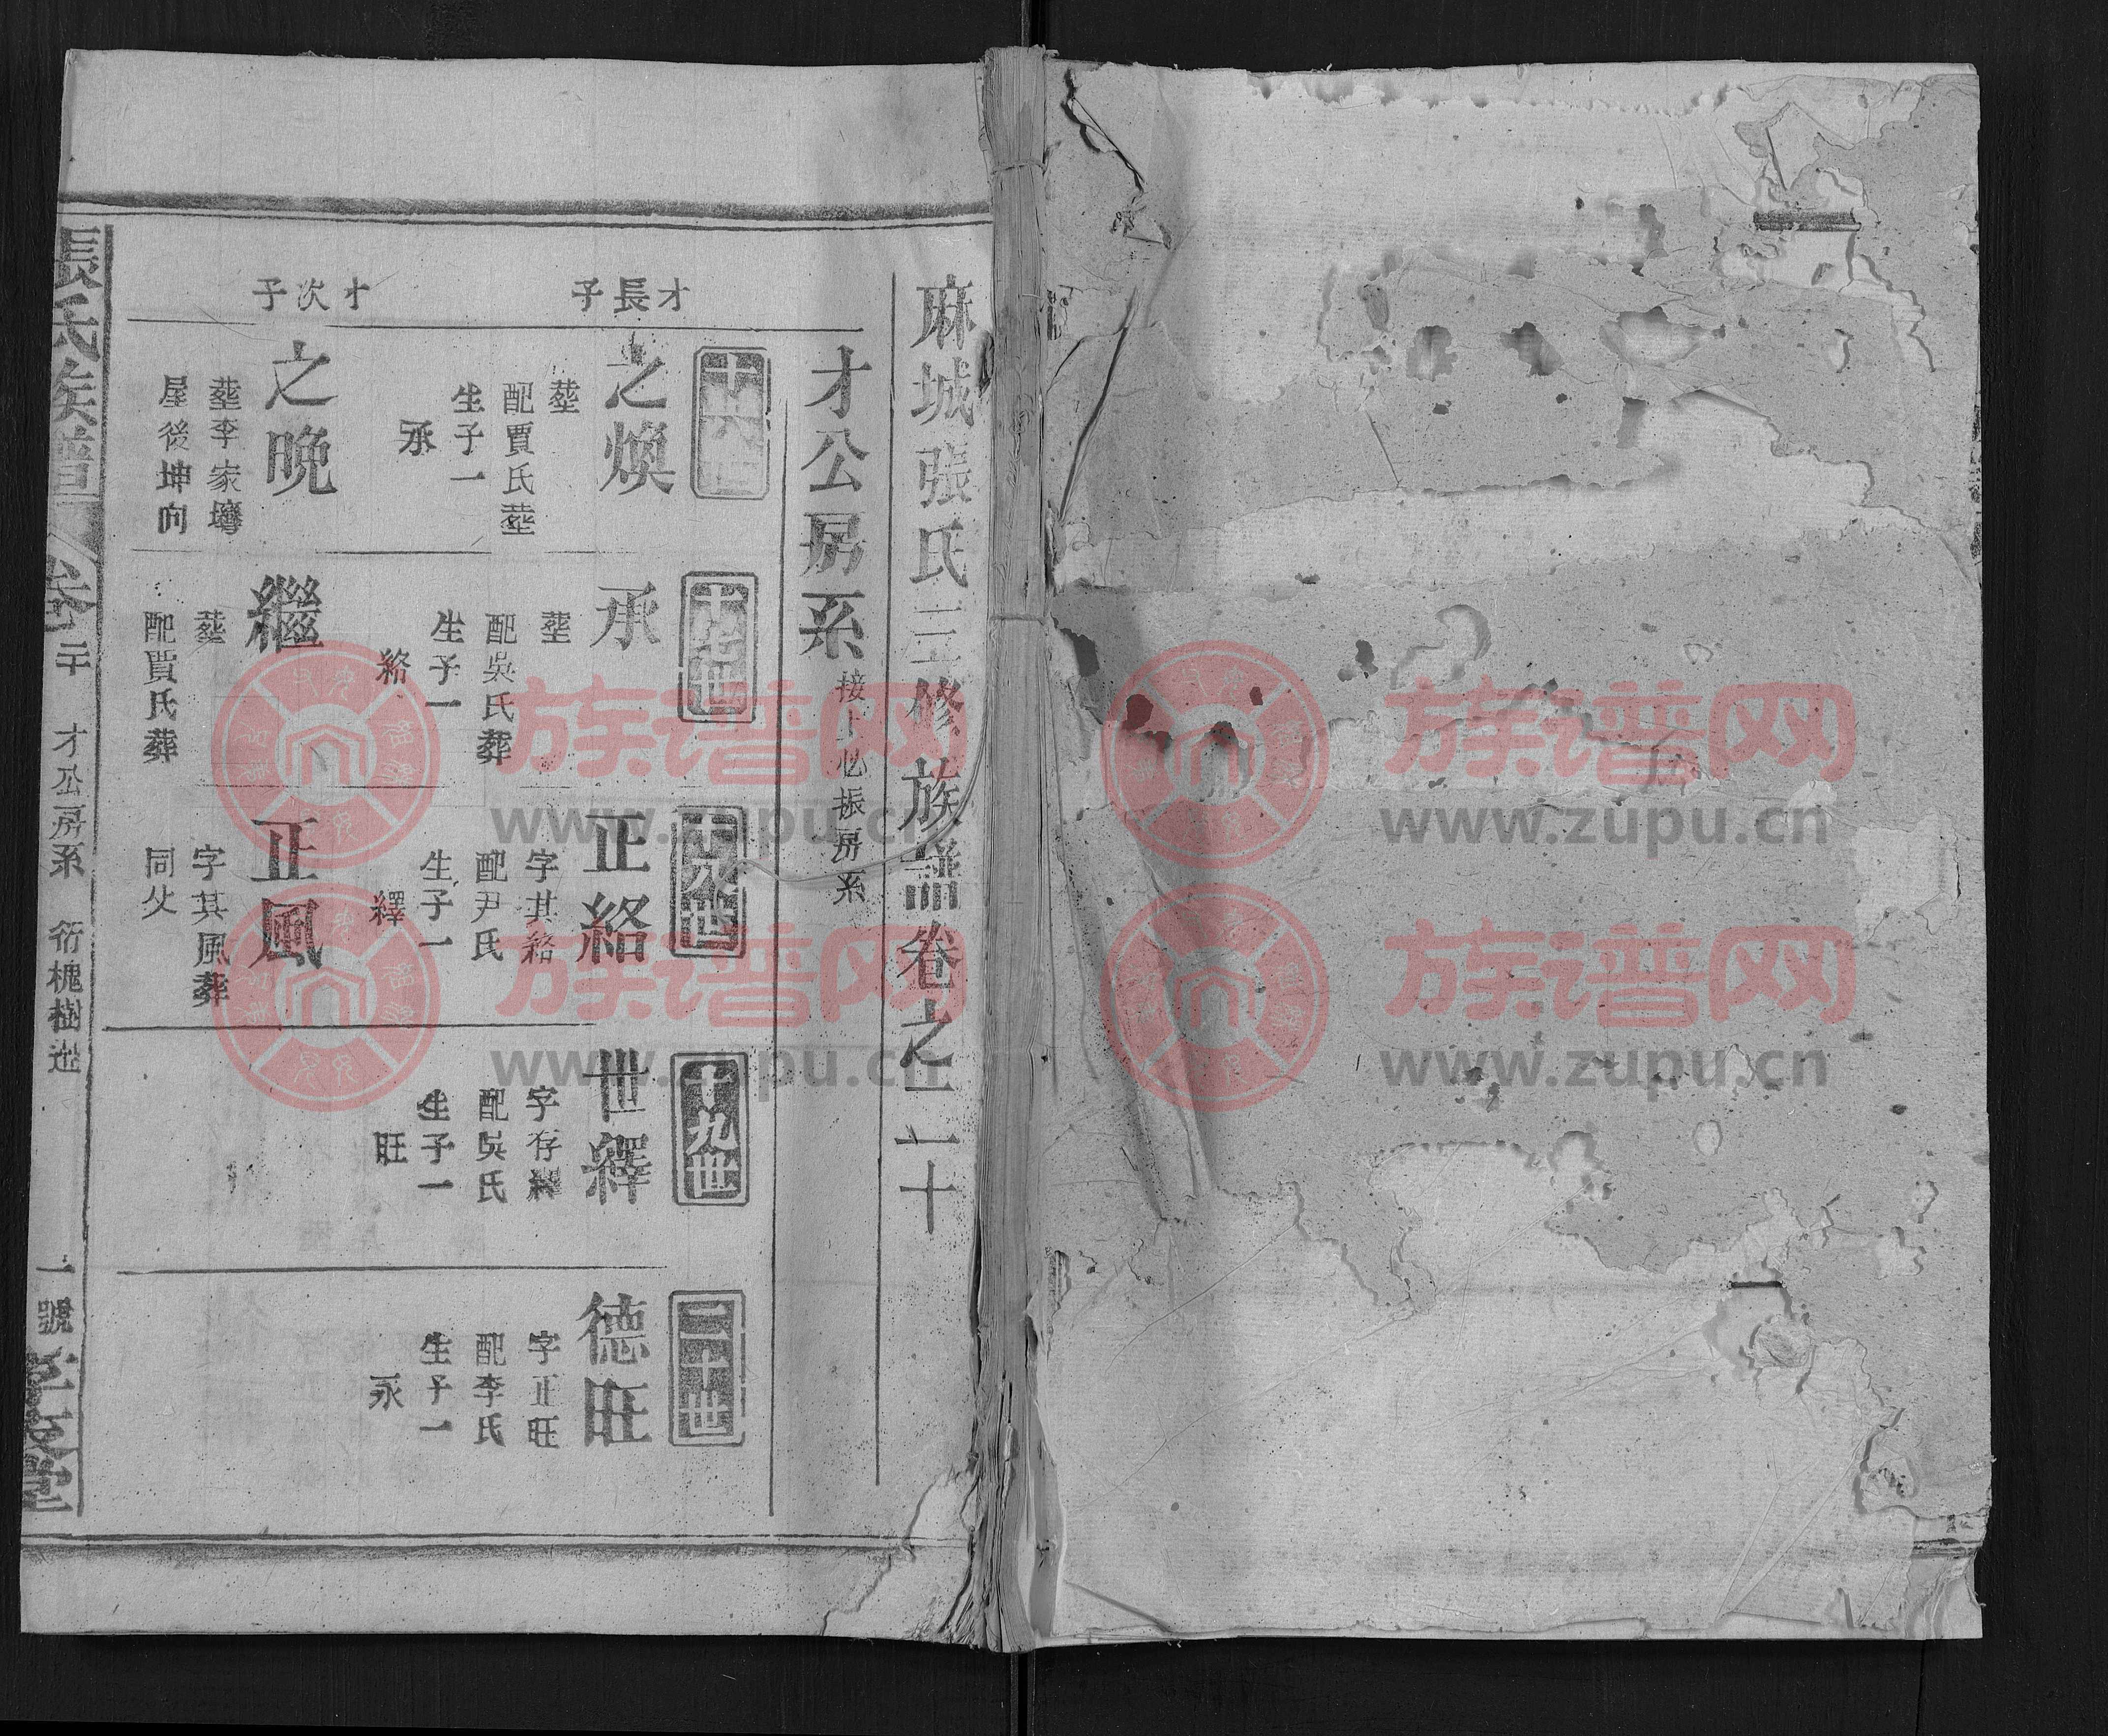 麻城張氏三修族譜卷之二十
才公房系
接上必振房系
十六世
十七世
十八世
十九世
二十世
才長子
之煥
葬
配賈氏葬
生子一
承
承
葬
配吳氏葬
生子一
絡
正絡
字其絡
配尹氏
生子一
繹
世繹
字存繹
配吳氏
生子一
旺
德旺
字正旺
配李氏
生子一
永
才次子
之晚
葬李家塆
屋後坤向
繼
葬
配賈氏葬
正風
字其風葬
同父
張氏族譜
卷二十
才公房系
一號
孝友堂
族谱网
www.zupu.cn
族谱网
www.zupu.cn
族谱网
www.zupu.cn
族谱网
www.zupu.cn